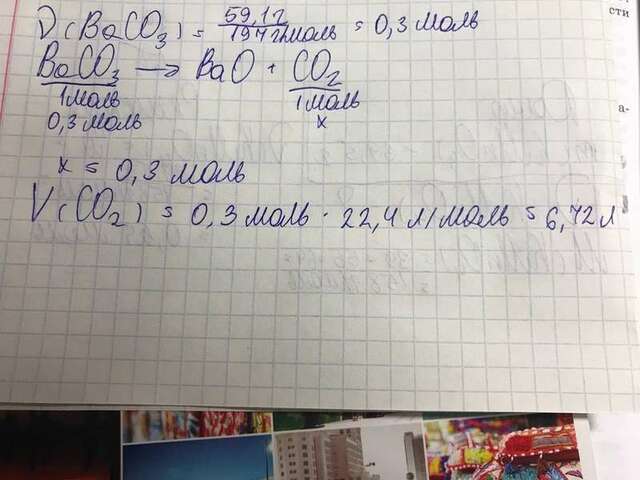 ν(BaCO₃) = 59,1г/197г/моль = 0,3 моль
BaCO₃ → BaO + CO₂
1моль 1моль
0,3моль x
x = 0,3 моль
V(CO₂) = 0,3 моль · 22,4 л/моль = 6,72л
сти
а-